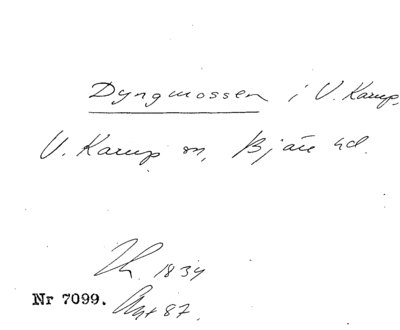 Dyngmossen i V. Karup,
V. Karup sn, Bjäre hd.
1834
Nr 7099. Akt 87.